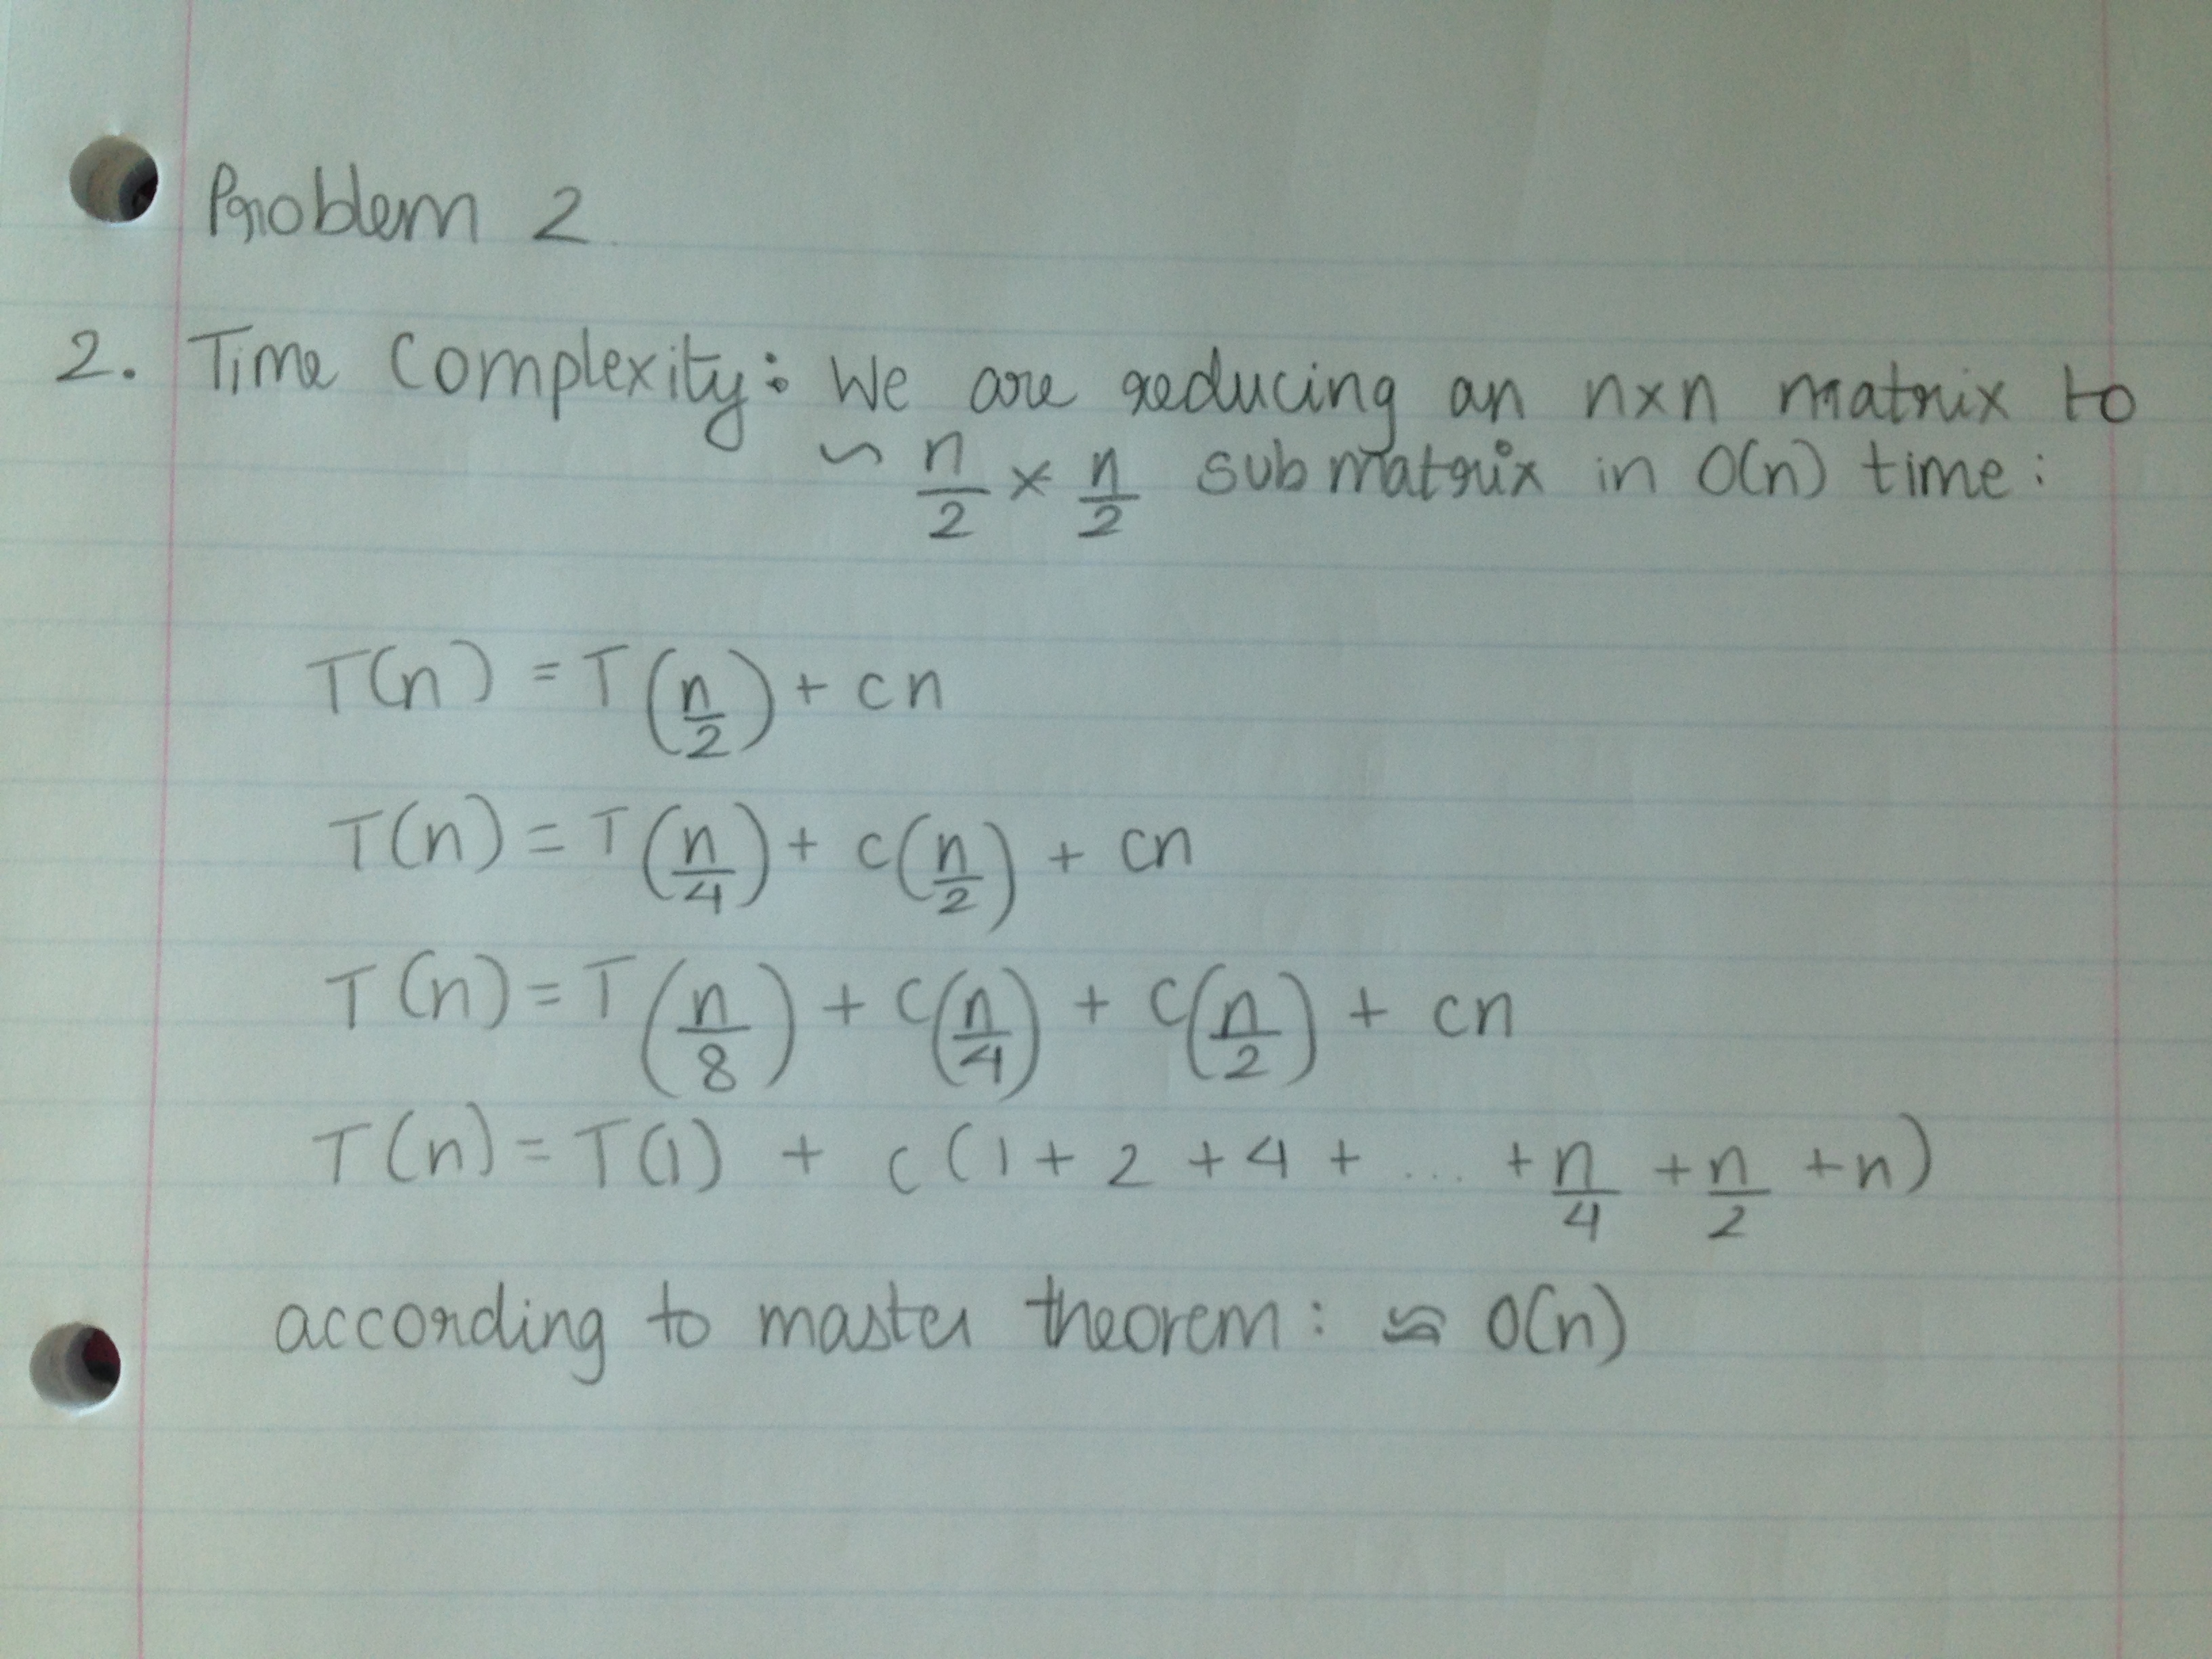 Problem 2
2. Time Complexity: We are reducing an n×n matrix to
~ n/2 × n/2 submatrix in O(n) time:
T(n) = T(n/2) + cn
T(n) = T(n/4) + c(n/2) + cn
T(n) = T(n/8) + c(n/4) + c(n/2) + cn
T(n) = T(1) + c(1 + 2 + 4 + ... + n/4 + n/2 + n)
according to master theorem: ≈ O(n)